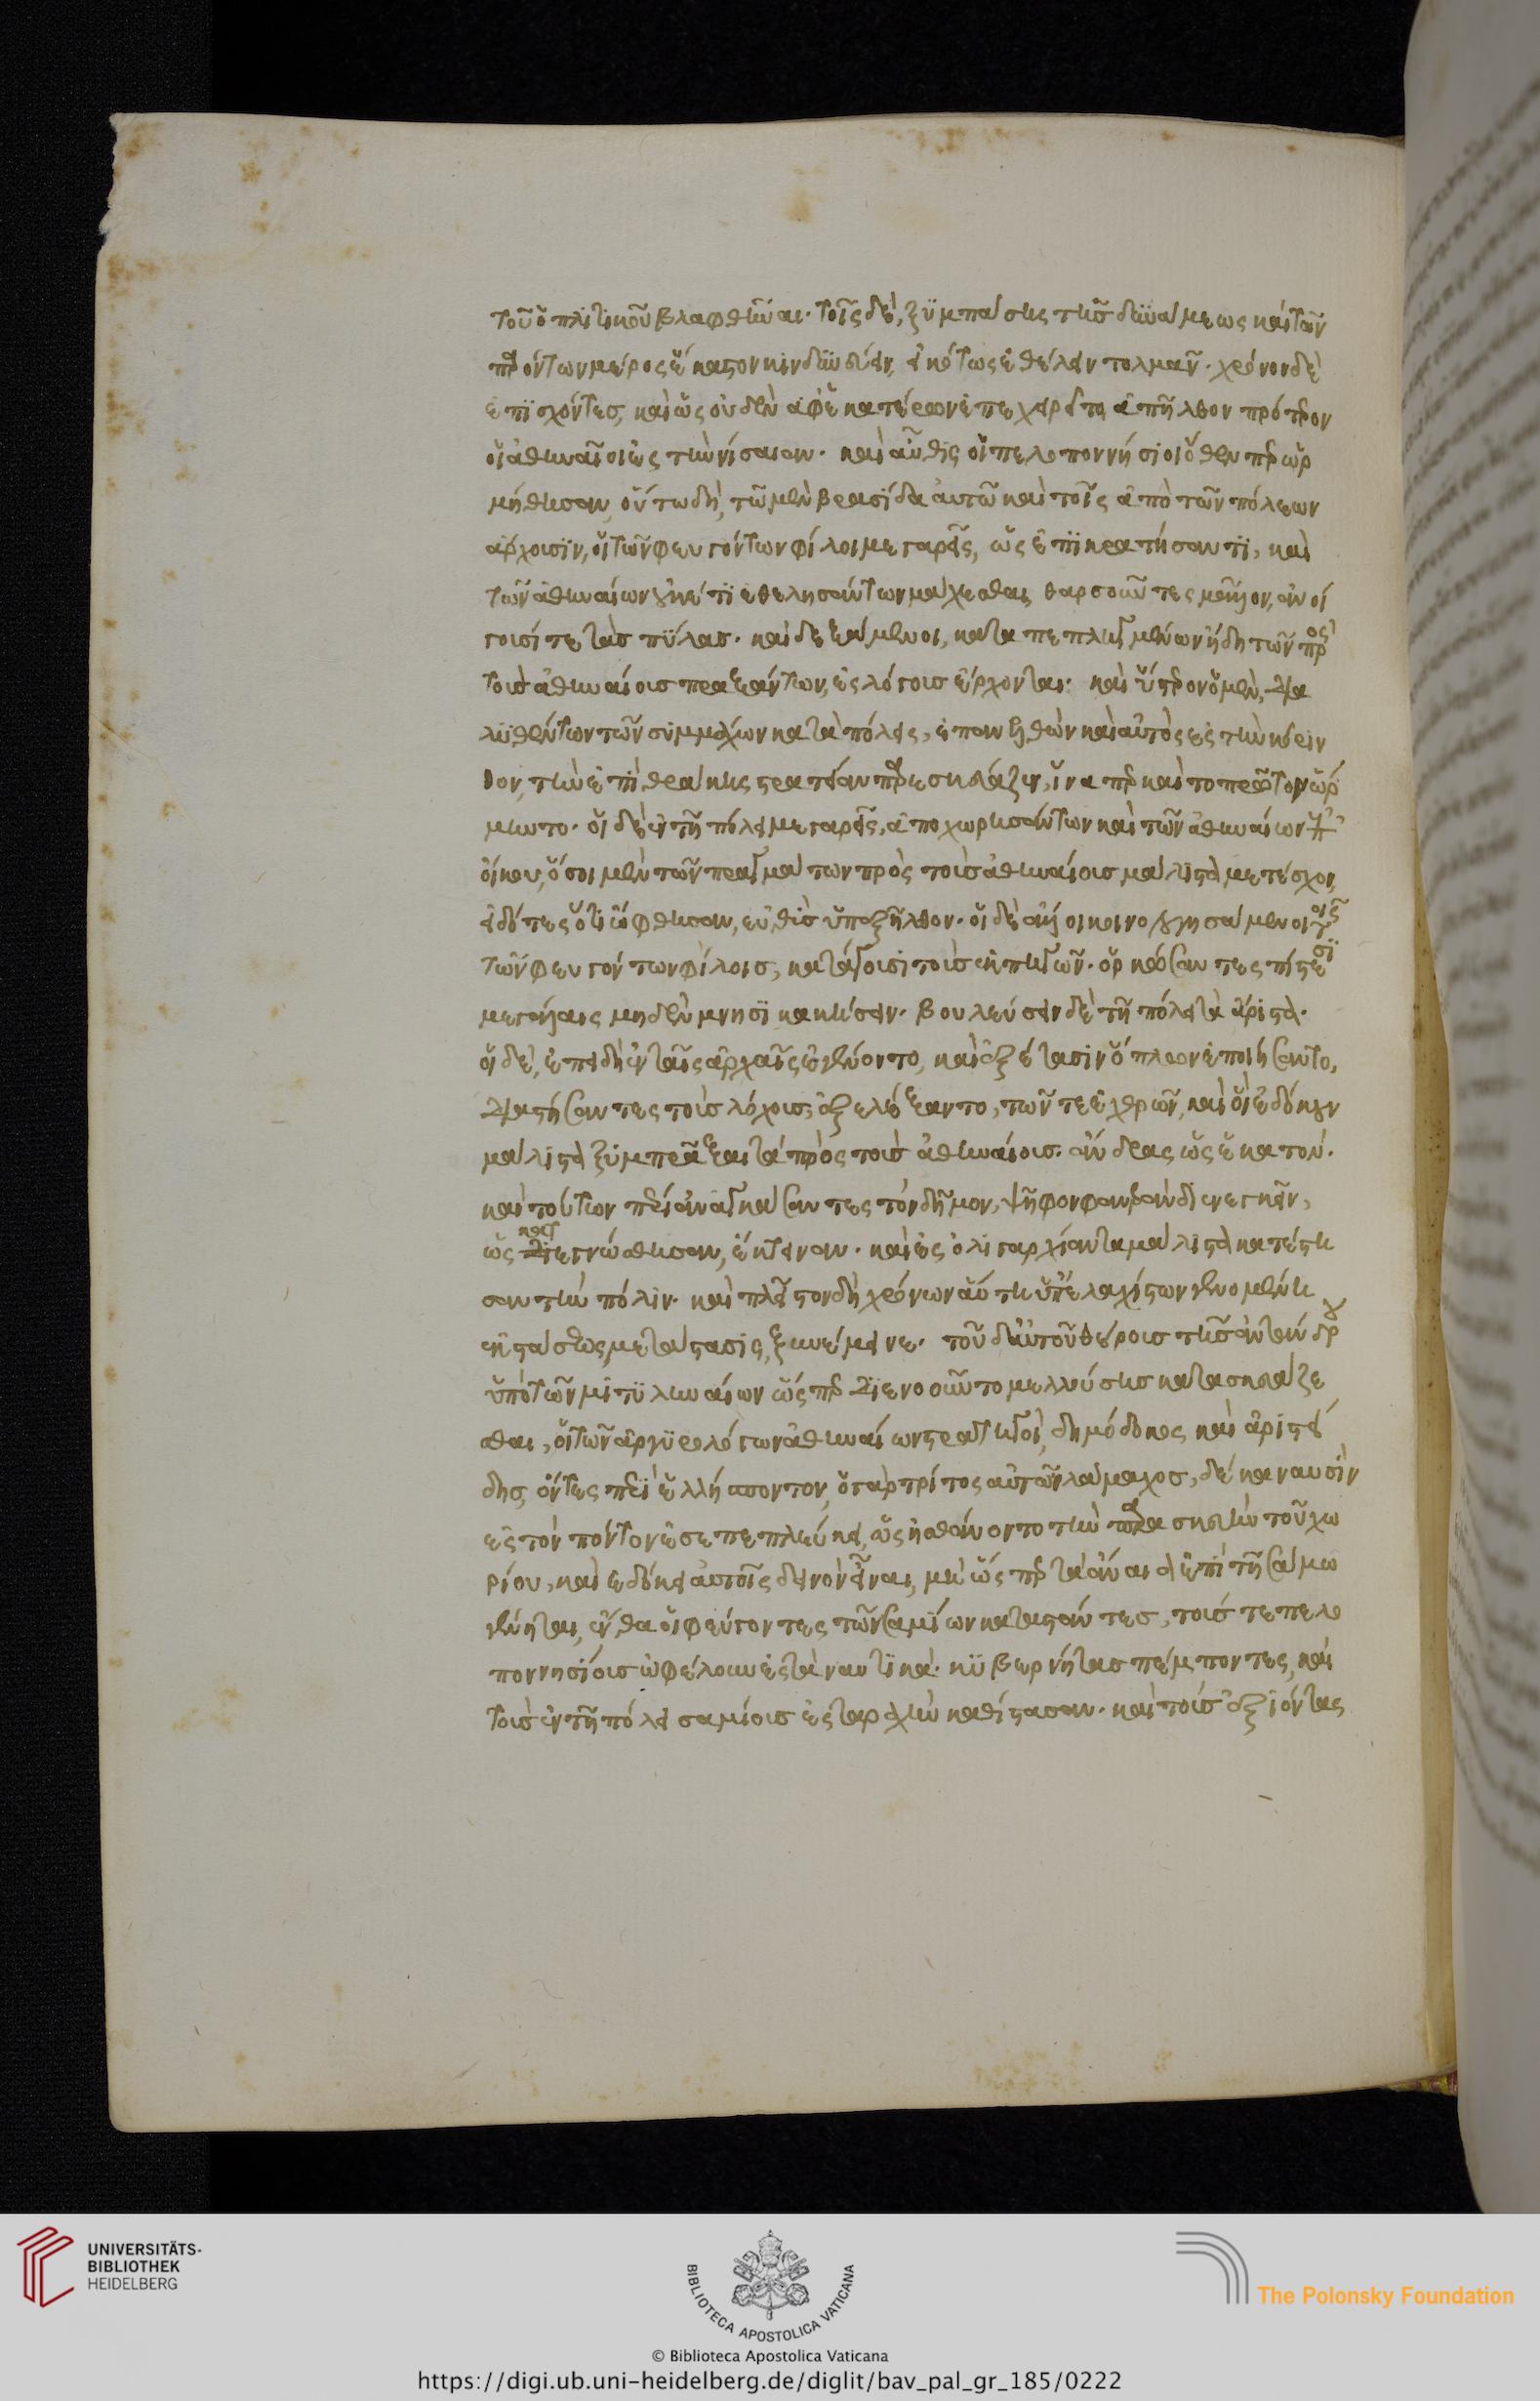 τοῦ ὁπλιτικοῦ βλαφθῆναι· τοῖς δὲ, ξυμπάσης τῆς δυνάμεως καὶ τῶν
παρόντων μέρος ἕκαστον κινδυνεύειν, εἰκότως ἐθέλειν τολμᾶν· χρόνον δὲ
ἐπισχόντες, καὶ ὡς οὐδὲν ἀφ' ἑκατέρων ἐπεχειρεῖτο, ἀπῆλθον πρότερον
οἱ ἀθηναῖοι ἐς τὴν νίσαιαν· καὶ αὖθις οἱ πελοποννήσιοι ὅθεν περ ὡρ
μήθησαν, οὕτω δὴ, τῶ μὲν βρασίδα αὐτῶ καὶ τοῖς ἀπὸ τῶν πόλεων
ἄρχουσιν, οἱ τῶν φευγόντων φίλοι μεγαρεῖς, ὡς ἐπικρατήσαντι, καὶ
τῶν ἀθηναίων οὐκέτι ἐθελησάντων μάχεσθαι, θαρσοῦντες μᾶλλον, ἀνοί
γουσί τε τὰς πύλας· καὶ δεξάμενοι, καταπεπληγμένων ἤδη τῶν πρὸς
τοὺς ἀθηναίους πραξάντων, ἐς λόγους ἔρχονται· καὶ ὕστερον ὁ μὲν, δια
λυθέντων τῶν συμμάχων κατὰ πόλεις, ἐπανελθὼν καὶ αὐτὸς ἐς τὴν κόριν
θον, τὴν ἐπὶ θράκης στρατείαν παρεσκεύαζεν, ἵνα περ καὶ τὸ πρῶτον ὥρ
μητο· οἱ δὲ ἐν τῇ πόλει μεγαρεῖς, ἀποχωρησάντων καὶ τῶν ἀθηναίων ἐπ'
οἴκου, ὅσοι μὲν τῶν πραγμάτων πρὸς τοὺς ἀθηναίους μάλιστα μετέσχον,
εἰδότες ὅτι ὤφθησαν, εὐθὺς ὑπεξῆλθον· οἱ δὲ ἄλλοι κοινολογησάμενοι τοῖς
τῶν φευγόντων φίλοις, κατάγουσι τοὺς ἐκ πηγῶν· ὁρκώσαντες πίστεσι
μεγάλαις μηδὲν μνησικακήσειν· βουλεύσειν δὲ τῇ πόλει τὰ ἄριστα·
οἱ δὲ, ἐπειδὴ ἐν ταῖς ἀρχαῖς ἐγένοντο, καὶ ἐξέτασιν ὅπλων ἐποιήσαντο,
διαστήσαντες τοὺς λόχους, ἐξελέξαντο, τῶν τε ἐχθρῶν, καὶ οἳ ἐδόκουν
μάλιστα ξυμπρᾶξαι τὰ πρὸς τοὺς ἀθηναίους· ἄνδρας ὡς ἑκατόν·
καὶ τούτων πέρι ἀναγκάσαντες τὸν δῆμον, ψῆφον φανερὰν διενεγκεῖν,
ὡς κατεγνώσθησαν, ἔκτειναν· καὶ ἐς ὀλιγαρχίαν τὰ μάλιστα κατέστη
σαν τὴν πόλιν· καὶ πλεῖστον δὴ χρόνον αὕτη ὑπ' ἐλαχίστων γενομένη
ἐκ στάσεως μετάστασις, ξυνέμεινε· τοῦ δ' αὐτοῦ θέρους τῆς ἀντάνδρου
ὑπὸ τῶν μιτυληναίων ὥσπερ διενοοῦντο μελλούσης κατασκευάζε
σθαι, οἱ τῶν ἀργυρολόγων ἀθηναίων στρατηγοὶ, δημόδοκος καὶ ἀριστεί
δης, ὄντες περὶ ἑλλήσποντον, ὁ γὰρ τρίτος αὐτῶν λάμαχος, δέκα ναυσὶν
ἐς τὸν πόντον ἐσεπεπλεύκει, ὡς ἠσθάνοντο τὴν παρασκευὴν τοῦ χω
ρίου, καὶ ἐδόκει αὐτοῖς δεινὸν εἶναι, μὴ ὥσπερ τὰ ἄναια ἐπὶ τῇ σάμω
γένηται, ἔνθα οἱ φεύγοντες τῶν σαμίων καταστάντες, τούς τε πελο
ποννησίους ὠφέλουν ἐς τὰ ναυτικὰ· κυβερνήτας πέμποντες, καὶ
τοὺς ἐν τῇ πόλει σαμίους ἐς ταραχὴν καθίστασαν· καὶ τοὺς ἐξιόντας
UNIVERSITÄTS-
BIBLIOTHEK
HEIDELBERG
BIBLIOTECA APOSTOLICA VATICANA
The Polonsky Foundation
© Biblioteca Apostolica Vaticana
https://digi.ub.uni-heidelberg.de/diglit/bav_pal_gr_185/0222